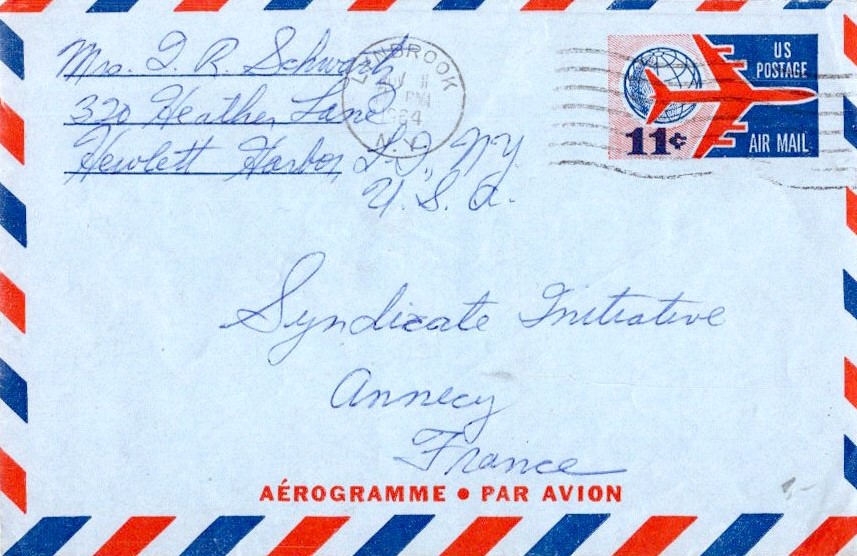 Mrs. D. R. Schwartz
320 Heather Lane
Hewlett Harbor, L. I., NY
U. S. A.
LYNBROOK
PM
1964
N.Y.
US
POSTAGE
11¢
AIR MAIL
Syndicate Initiative
Annecy
France
AÉROGRAMME • PAR AVION